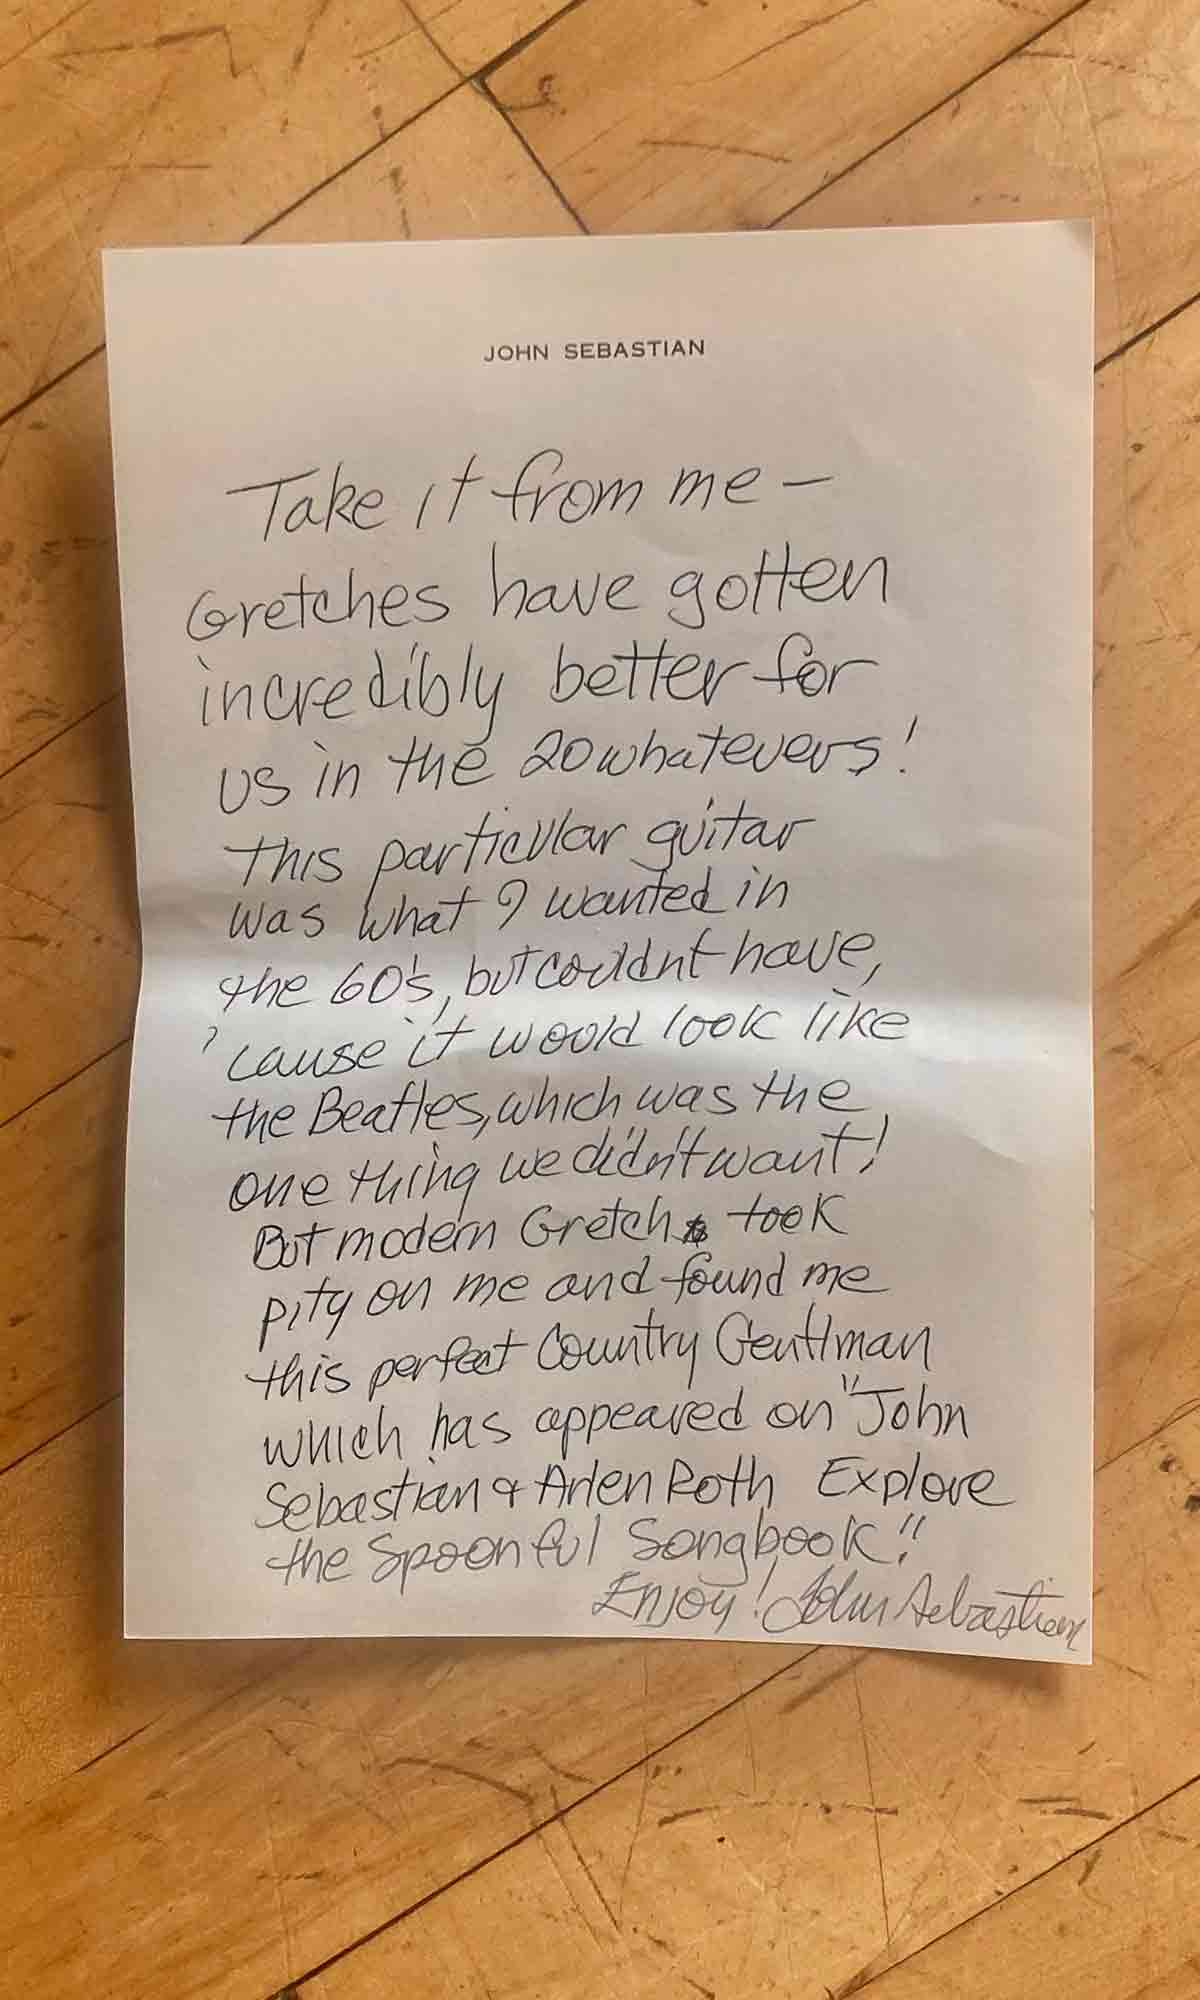 JOHN SEBASTIAN
Take it from me –
Gretches have gotten
incredibly better for
us in the 20whatevers!
This particular guitar
was what I wanted in
the 60's, but couldn't have,
'cause it would look like
the Beatles, which was the
one thing we didn't want!
But modern Gretch took
pity on me and found me
this perfect Country Gentlman
which has appeared on "John
Sebastian & Arlen Roth Explore
the Spoonful Songbook!!
Enjoy! John Sebastian